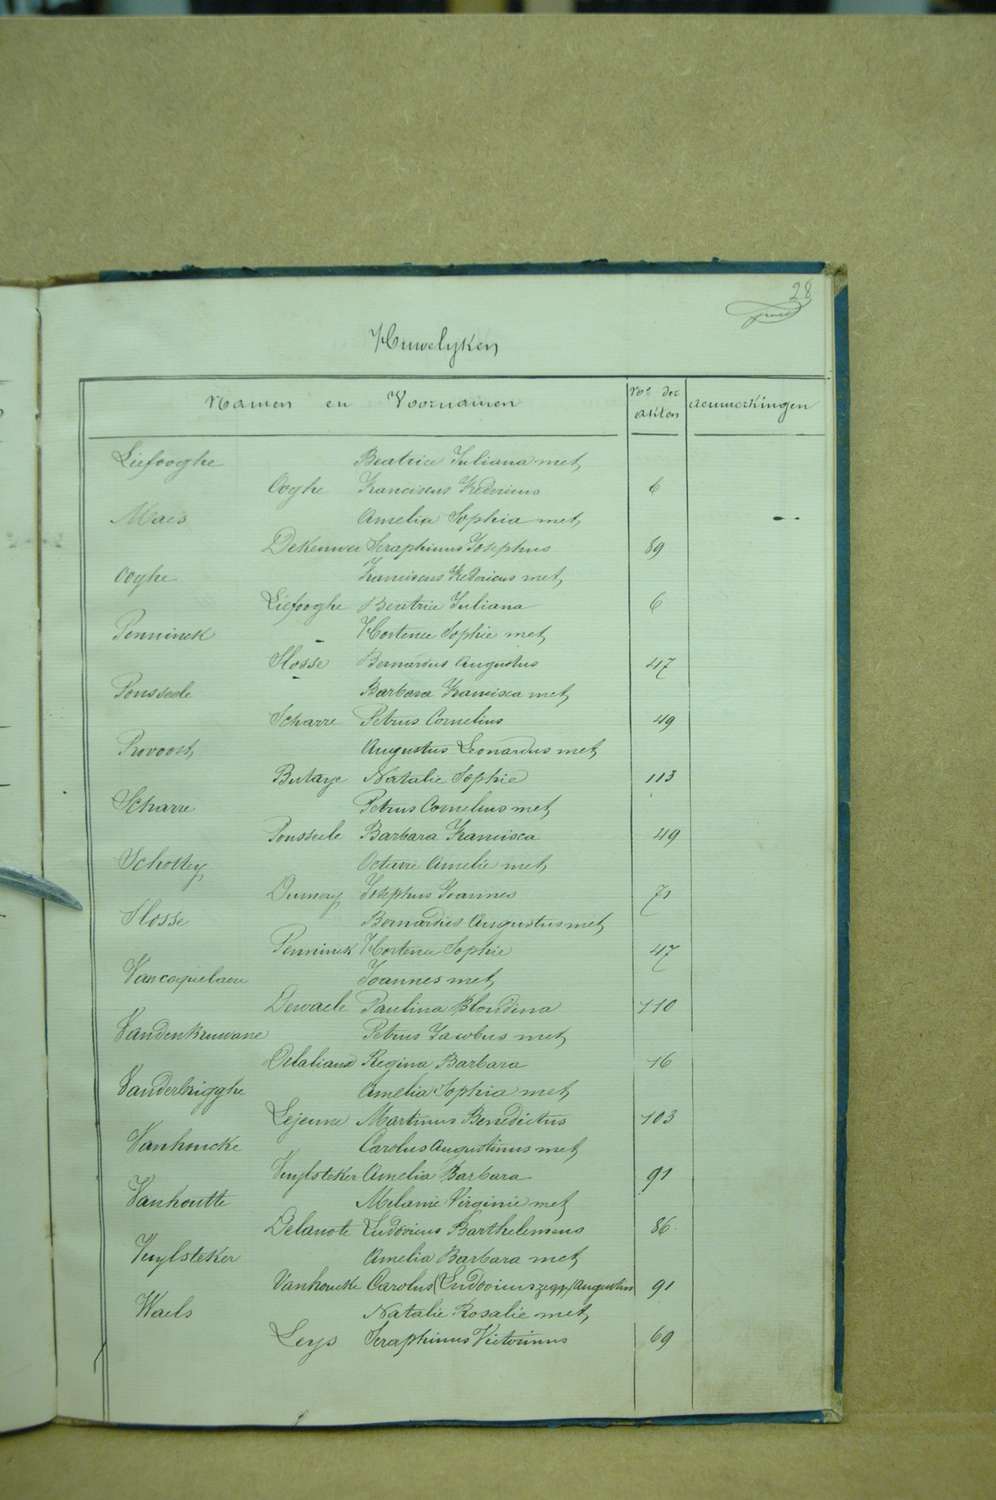 28
Huwelyken
Namen en Voornamen Nos der akten Aenmerkingen
Liefooghe Beatrice Juliana met
Ooghe Franciscus Federicus 6
Maes Amelia Sophia met
Dekeuwer Seraphinus Josephus 89
Ooghe Franciscus Federicus met
Liefooghe Beatrice Juliana 6
Penninck Hortence Sophie met
Slosse Bernardus Augustus 47
Pousseele Barbara Francisca met
Scharre Petrus Cornelius 49
Provoost Augustus Leonardus met
Butaye Natalie Sophie 113
Scharre Petrus Cornelius met
Pousseele Barbara Francisca 49
Schottey Octavie Amelie met
Dumey Josephus Joannes 71
Slosse Bernardus Augustus met
Penninck Hortence Sophie 47
Vancoquelaere Joannes met
Dewaele Paulina Blondina 110
Vandenkruwane Petrus Jacobus met
Regina Barbara 16
Vanderbrigghe Amelia Sophia met
Lejeune Martinus Benedictus 103
Vanhoucke Carolus Augustinus met
Vuylsteker Amelia Barbara 91
Vanhoutte Melanie Virginie met
Delanote Ludovicus Barthelemeus 86
Vuylsteker Amelia Barbara met
Vanhoucke Carolus (Ludovicus zegge) Augustin 91
Waels Natalie Rosalie met
Leys Seraphinus Victorinus 69